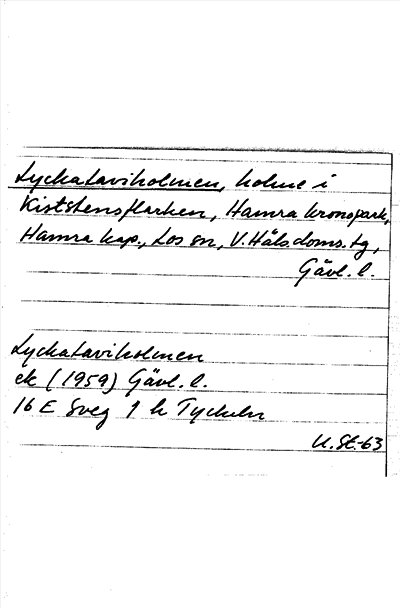 Lyckataviholmen, holme i
Kiststensflarken, Hamra kronopark,
Hamra kap., Los sn, V. Häls. doms. tg,
Gävl. l.
Lyckataviholmen
ek (1959) Gävl. l.
16 E Sveg 1 h Tyckeln
U. St. -63